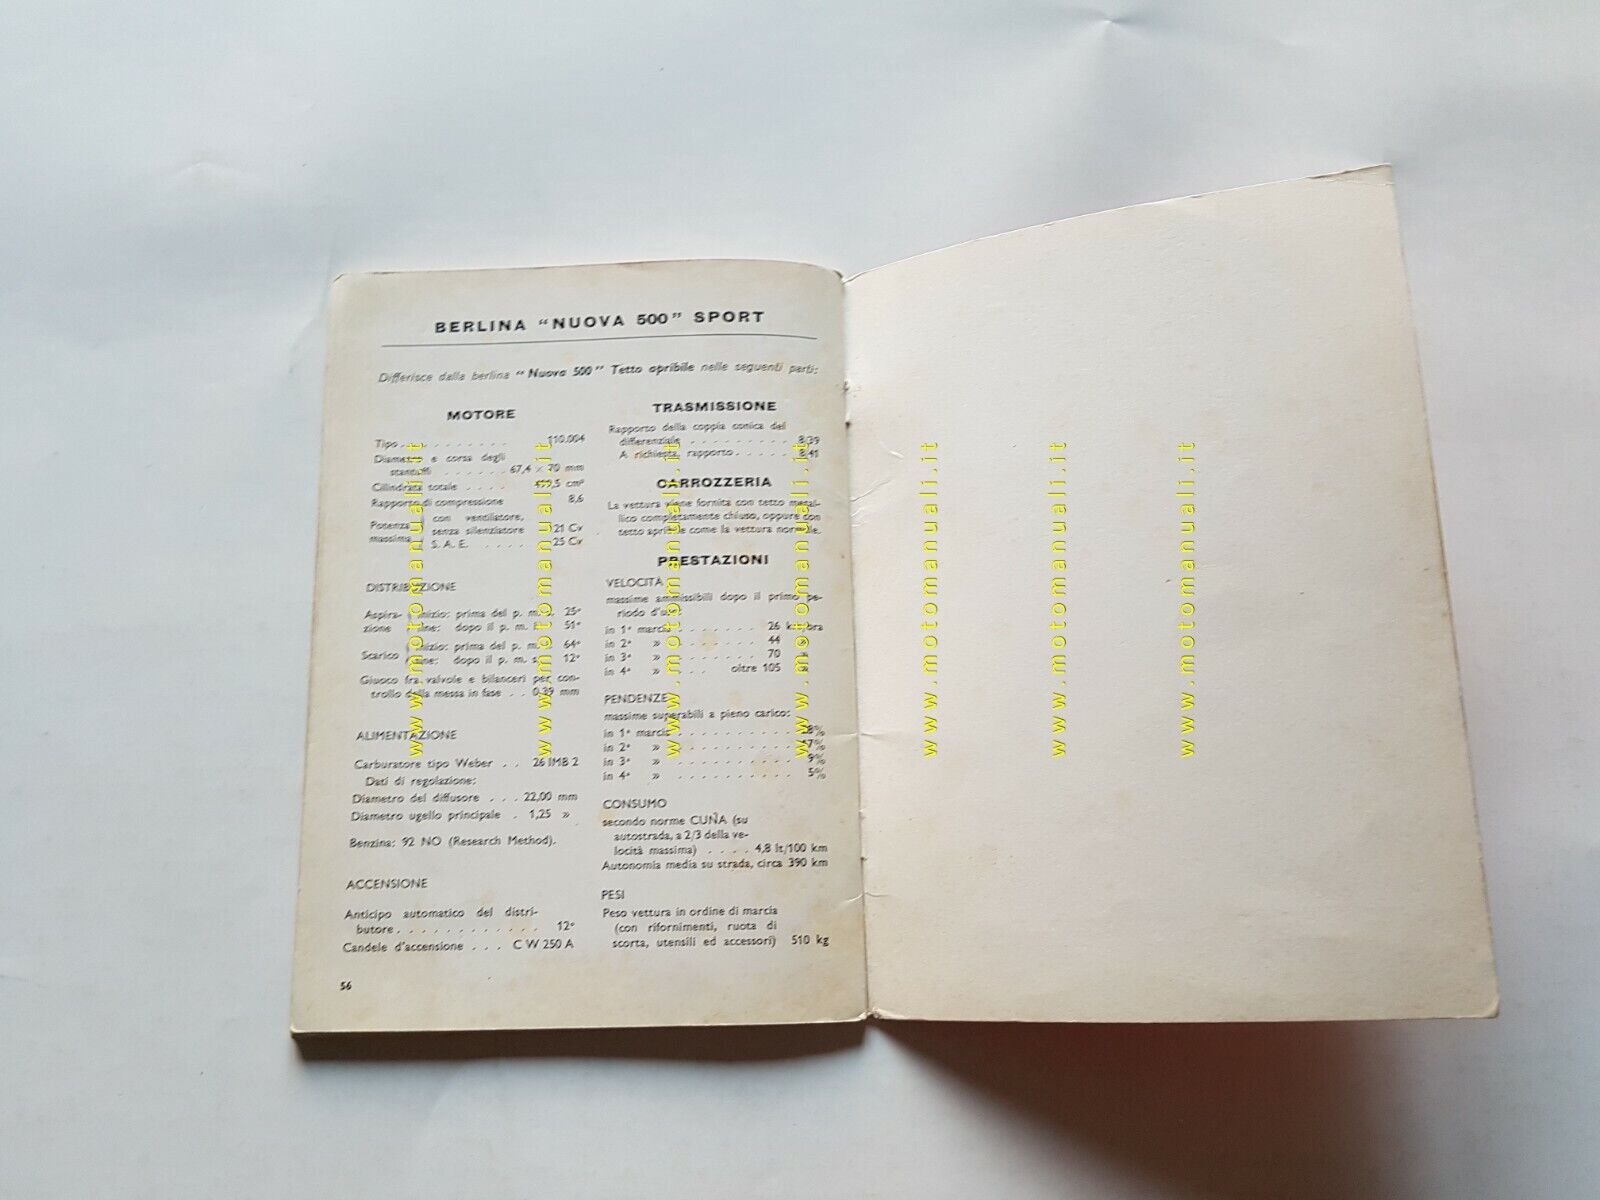 BERLINA "NUOVA 500" SPORT
Differisce dalla berlina "Nuova 500" Tetto apribile nelle seguenti parti:
MOTORE
Tipo . . . . . . . . . . 110.004
Diametro e corsa degli
stantuffi . . . . . . 67,4 × 70 mm
Cilindrata totale . . . . 499,5 cm³
Rapporto di compressione 8,6
Potenza massima
con ventilatore,
senza silenziatore 21 Cv
S. A. E. . . . . 25 Cv
DISTRIBUZIONE
Aspira- inizio: prima del p. m. s. 25°
zione fine: dopo il p. m. i. 51°
Scarico inizio: prima del p. m. i. 64°
fine: dopo il p. m. s. 12°
Giuoco fra valvole e bilanceri per con-
trollo della messa in fase . . 0,39 mm
ALIMENTAZIONE
Carburatore tipo Weber . . 26 IMB 2
Dati di regolazione:
Diametro del diffusore . . . 22,00 mm
Diametro ugello principale . 1,25 »
Benzina: 92 NO (Research Method).
ACCENSIONE
Anticipo automatico del distri-
butore . . . . . . . . . . . . 12°
Candele d'accensione . . . C W 250 A
56
TRASMISSIONE
Rapporto della coppia conica del
differenziale . . . . . . . . . 8/39
A richiesta, rapporto . . . . . 8/41
CARROZZERIA
La vettura viene fornita con tetto metal-
lico completamente chiuso, oppure con
tetto apribile come la vettura normale.
PRESTAZIONI
VELOCITÀ
massime ammissibili dopo il primo pe-
riodo d'uso:
in 1ª marcia . . . . . . . 26 km/ora
in 2ª » . . . . . . . 44 »
in 3ª » . . . . . . . 70 »
in 4ª » . . . . oltre 105 »
PENDENZE
massime superabili a pieno carico:
in 1ª marcia . . . . . . . . . 28%
in 2ª » . . . . . . . . . 17%
in 3ª » . . . . . . . . . 9%
in 4ª » . . . . . . . . . 5%
CONSUMO
secondo norme CUNA (su
autostrada, a 2/3 della ve-
locità massima) . . . . 4,8 lt/100 km
Autonomia media su strada, circa 390 km
PESI
Peso vettura in ordine di marcia
(con rifornimenti, ruota di
scorta, utensili ed accessori) 510 kg
www.motomanuali.it
www.motomanuali.it
www.motomanuali.it
www.motomanuali.it
www.motomanuali.it
www.motomanuali.it
www.motomanuali.it